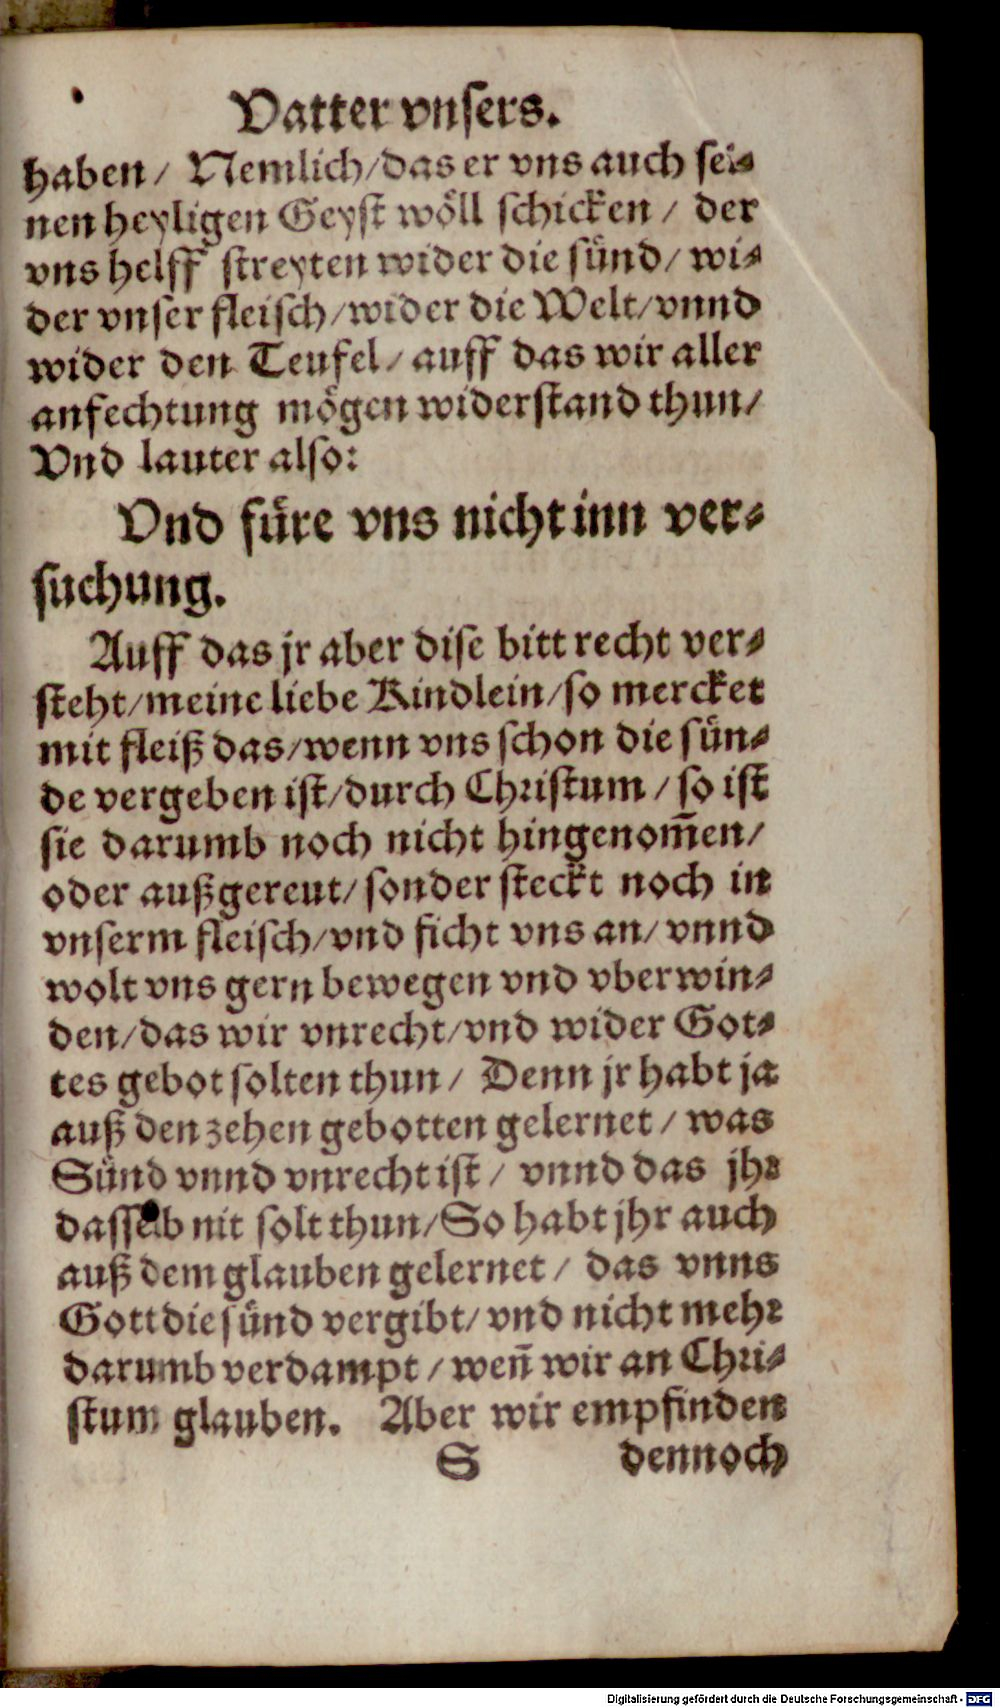 Vatter vnsers.
haben/ Nemlich/das er vns auch sei⸗
nen heyligen Geyst wöll schicken/ der
vns helff streyten wider die sünd/ wi⸗
der vnser fleisch/wider die Welt/vnnd
wider den Teufel/ auff das wir aller
anfechtung mögen widerstand thun/
Vnd lauter also:
Vnd füre vns nicht inn ver⸗
suchung.
Auff das jr aber dise bitt recht ver⸗
steht/meine liebe Kindlein/so mercket
mit fleiß das/wenn vns schon die sün⸗
de vergeben ist/durch Christum/so ist
sie darumb noch nicht hingenom̄en/
oder außgereut/sonder steckt noch in
vnserm fleisch/vnd ficht vns an/ vnnd
wolt vns gern bewegen vnd vberwin⸗
den/das wir vnrecht/vnd wider Got⸗
tes gebot solten thun/ Denn jr habt ja
auß den zehen gebotten gelernet/ was
Sünd vnnd vnrecht ist/ vnnd das jhr
dasselb nit solt thun/So habt jhr auch
auß dem glauben gelernet/ das vnns
Gott die sünd vergibt/vnd nicht mehr
darumb verdampt/wen̄ wir an Chri⸗
stum glauben. Aber wir empfinden
S dennoch
Digitalisierung gefördert durch die Deutsche Forschungsgemeinschaft - DFG